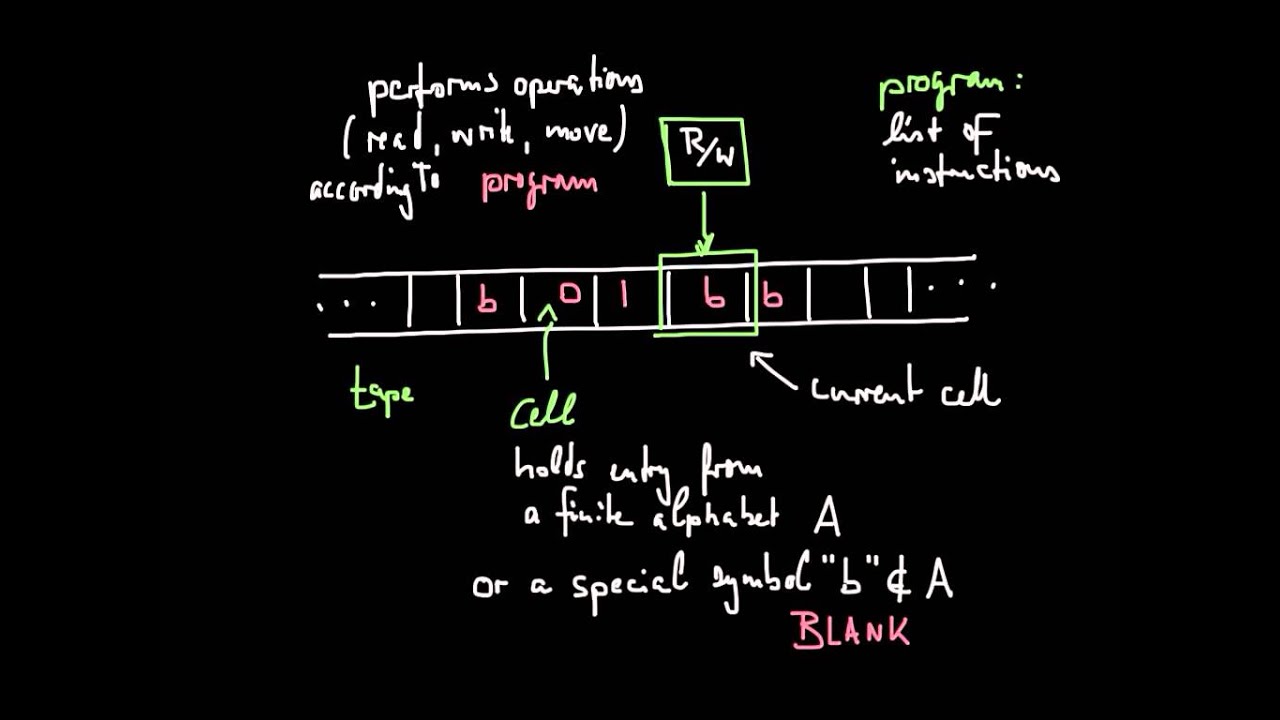 performs operations
(read, write, move)
according to program
R/W
program:
list of
instructions
... b 0 1 b b ...
tape
cell
current cell
holds entry from
a finite alphabet A
or a special symbol "b" ∉ A
BLANK